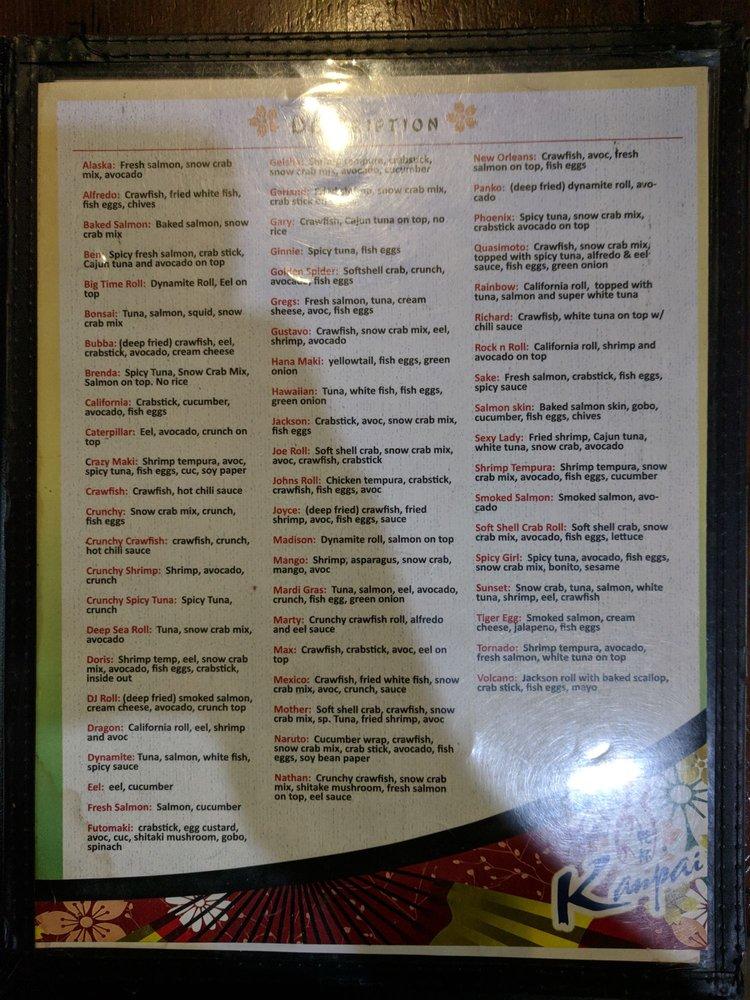 DESCRIPTION
Alaska: Fresh salmon, snow crab
mix, avocado
Alfredo: Crawfish, fried white fish,
fish eggs, chives
Baked Salmon: Baked salmon, snow
crab mix
Ben: Spicy fresh salmon, crab stick,
Cajun tuna and avocado on top
Big Time Roll: Dynamite Roll, Eel on
top
Bonsai: Tuna, salmon, squid, snow
crab mix
Bubba: (deep fried) crawfish, eel,
crabstick, avocado, cream cheese
Brenda: Spicy Tuna, Snow Crab Mix,
Salmon on top. No rice
California: Crabstick, cucumber,
avocado, fish eggs
Caterpillar: Eel, avocado, crunch on
top
Crazy Maki: Shrimp tempura, avoc,
spicy tuna, fish eggs, cuc, soy paper
Crawfish: Crawfish, hot chili sauce
Crunchy: Snow crab mix, crunch,
fish eggs
Crunchy Crawfish: crawfish, crunch,
hot chili sauce
Crunchy Shrimp: Shrimp, avocado,
crunch
Crunchy Spicy Tuna: Spicy Tuna,
crunch
Deep Sea Roll: Tuna, snow crab mix,
avocado
Doris: Shrimp temp, eel, snow crab
mix, avocado, fish eggs, crabstick,
inside out
DJ Roll: (deep fried) smoked salmon,
cream cheese, avocado, crunch top
Dragon: California roll, eel, shrimp
and avoc
Dynamite: Tuna, salmon, white fish,
spicy sauce
Eel: eel, cucumber
Fresh Salmon: Salmon, cucumber
Futomaki: crabstick, egg custard,
avoc, cuc, shitaki mushroom, gobo,
spinach
Geisha: Shrimp tempura, crabstick,
snow crab mix, avocado, cucumber
fried shrimp, snow crab mix,
crab stick
Gary: Crawfish, Cajun tuna on top, no
rice
Ginnie: Spicy tuna, fish eggs
Golden Spider: Softshell crab, crunch,
avocado, fish eggs
Gregs: Fresh salmon, tuna, cream
sheese, avoc, fish eggs
Gustavo: Crawfish, snow crab mix, eel,
shrimp, avocado
Hana Maki: yellowtail, fish eggs, green
onion
Hawaiian: Tuna, white fish, fish eggs,
green onion
Jackson: Crabstick, avoc, snow crab mix,
fish eggs
Joe Roll: Soft shell crab, snow crab mix,
avoc, crawfish, crabstick
Johns Roll: Chicken tempura, crabstick,
crawfish, fish eggs, avoc
Joyce: (deep fried) crawfish, fried
shrimp, avoc, fish eggs, sauce
Madison: Dynamite roll, salmon on top
Mango: Shrimp, asparagus, snow crab,
mango, avoc
Mardi Gras: Tuna, salmon, eel, avocado,
crunch, fish egg, green onion
Marty: Crunchy crawfish roll, alfredo
and eel sauce
Max: Crawfish, crabstick, avoc, eel on
top
Mexico: Crawfish, fried white fish, snow
crab mix, avoc, crunch, sauce
Mother: Soft shell crab, crawfish, snow
crab mix, sp. Tuna, fried shrimp, avoc
Naruto: Cucumber wrap, crawfish,
snow crab mix, crab stick, avocado, fish
eggs, soy bean paper
Nathan: Crunchy crawfish, snow crab
mix, shitake mushroom, fresh salmon
on top, eel sauce
New Orleans: Crawfish, avoc, fresh
salmon on top, fish eggs
Panko: (deep fried) dynamite roll, avo-
cado
Phoenix: Spicy tuna, snow crab mix,
crabstick avocado on top
Quasimoto: Crawfish, snow crab mix,
topped with spicy tuna, alfredo & eel
sauce, fish eggs, green onion
Rainbow: California roll, topped with
tuna, salmon and super white tuna
Richard: Crawfish, white tuna on top w/
chili sauce
Rock n Roll: California roll, shrimp and
avocado on top
Sake: Fresh salmon, crabstick, fish eggs,
spicy sauce
Salmon skin: Baked salmon skin, gobo,
cucumber, fish eggs, chives
Sexy Lady: Fried shrimp, Cajun tuna,
white tuna, snow crab, avocado
Shrimp Tempura: Shrimp tempura, snow
crab mix, avocado, fish eggs, cucumber
Smoked Salmon: Smoked salmon, avo-
cado
Soft Shell Crab Roll: Soft shell crab, snow
crab mix, avocado, fish eggs, lettuce
Spicy Girl: Spicy tuna, avocado, fish eggs,
snow crab mix, bonito, sesame
Sunset: Snow crab, tuna, salmon, white
tuna, shrimp, eel, crawfish
Tiger Egg: Smoked salmon, cream
cheese, jalapeno, fish eggs
Tornado: Shrimp tempura, avocado,
fresh salmon, white tuna on top
Volcano: Jackson roll with baked scallop,
crab stick, fish eggs, mayo
Kanpai